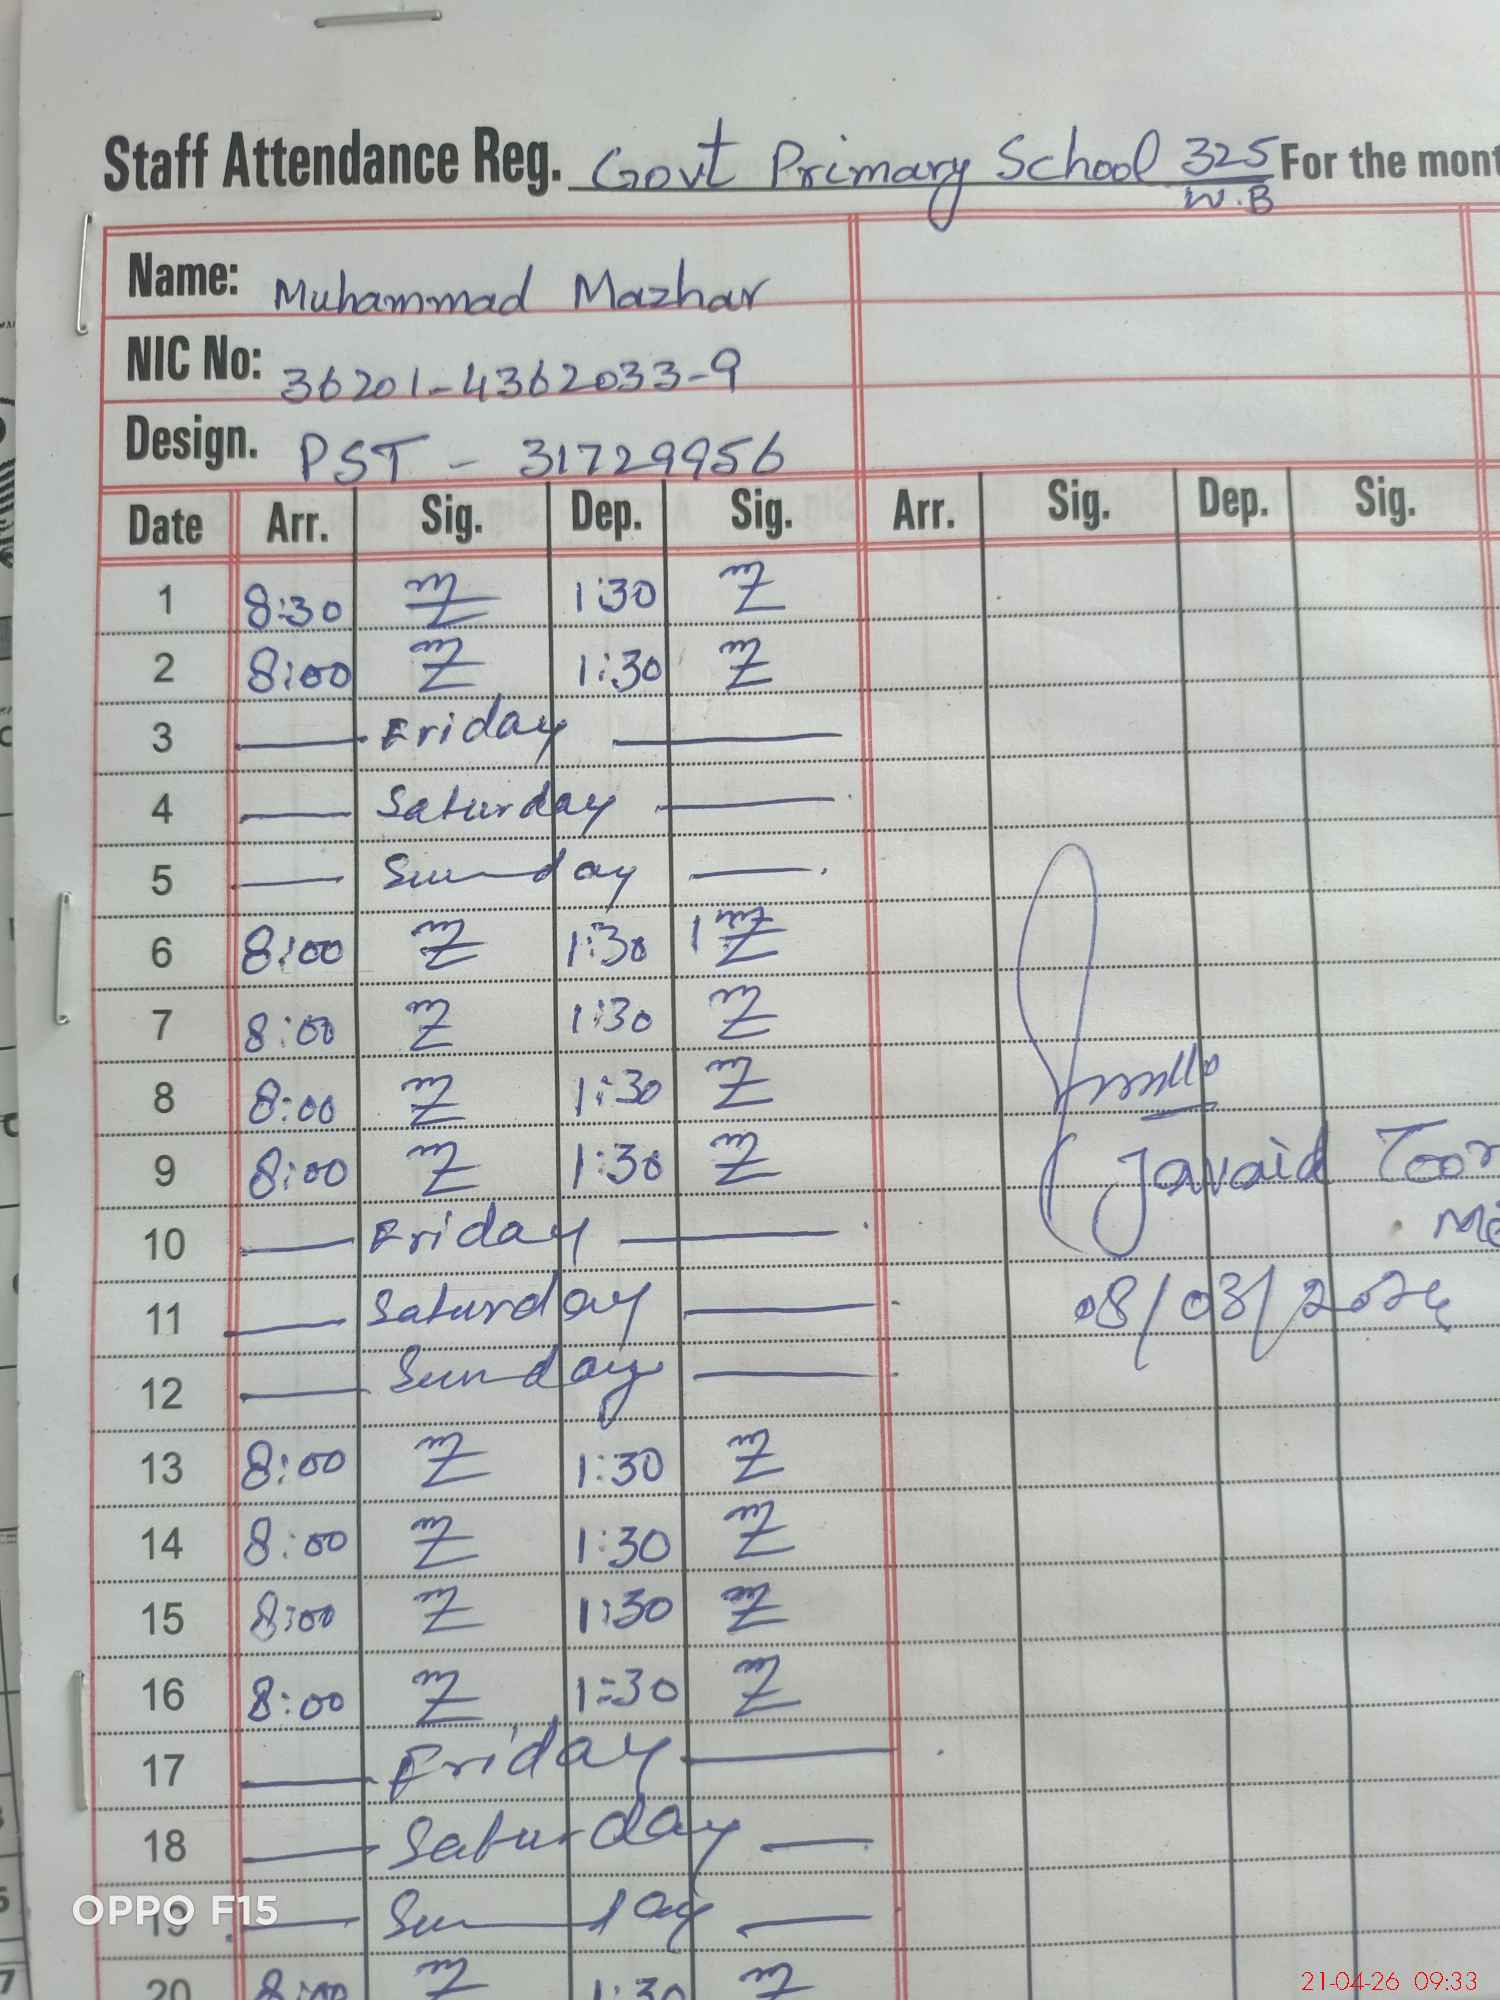 Staff Attendance Reg. Govt Primary School 325/W.B For the mont
Name: Muhammad Mazhar
NIC No: 36201-4362033-9
Design. PST - 31729956
Date Arr. Sig. Dep. Sig. Arr. Sig. Dep. Sig.
1 8:30 mZ 1:30 mZ
2 8:00 mZ 1:30 mZ
3 — Friday —
4 — Saturday —
5 — Sunday —
6 8:00 mZ 1:30 1 mZ
7 8:00 mZ 1:30 mZ
8 8:00 mZ 1:30 mZ
9 8:00 mZ 1:30 mZ
(Javaid Toor
10 — Friday —
Me
11 — Saturday —
08/03/202
12 — Sunday —
13 8:00 mZ 1:30 mZ
14 8:00 mZ 1:30 mZ
15 8:00 mZ 1:30 mZ
16 8:00 mZ 1:30 mZ
17 — Friday —
18 — Saturday —
19 — Sunday —
20 8:00 mZ 1:30 mZ
OPPO F15
21-04-26 09:33